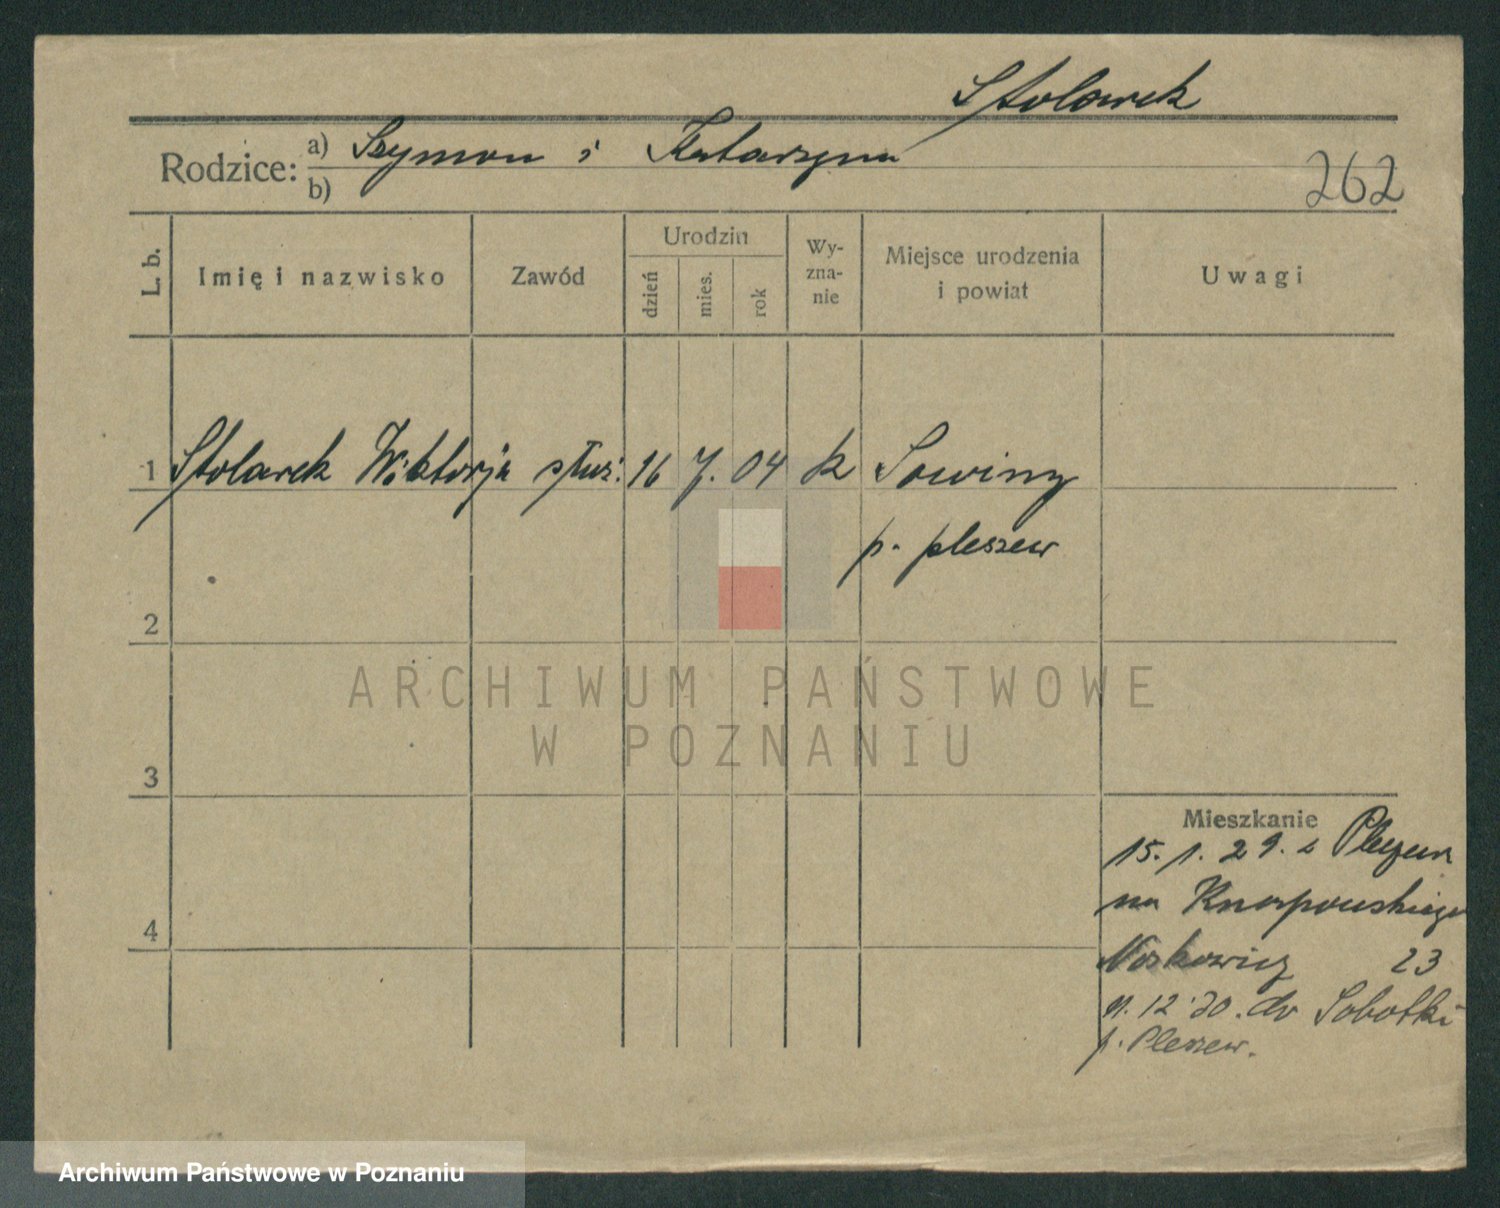 Stolarek
Rodzice: a) Szymon i Katarzyna
b)
262
L. b. Imię i nazwisko Zawód Urodzin dzień mies. rok Wy-zna-nie Miejsce urodzenia i powiat Uwagi
1 Stolarek Wiktorja służ. 16 7. 04 k Sowiny
p. pleszew
2
ARCHIWUM PAŃSTWOWE
W POZNANIU
3
Mieszkanie
15. 1. 29. z Pleszew
na Knapowskiego
4
23
12 30. do Sobotki
p. Pleszew.
Archiwum Państwowe w Poznaniu